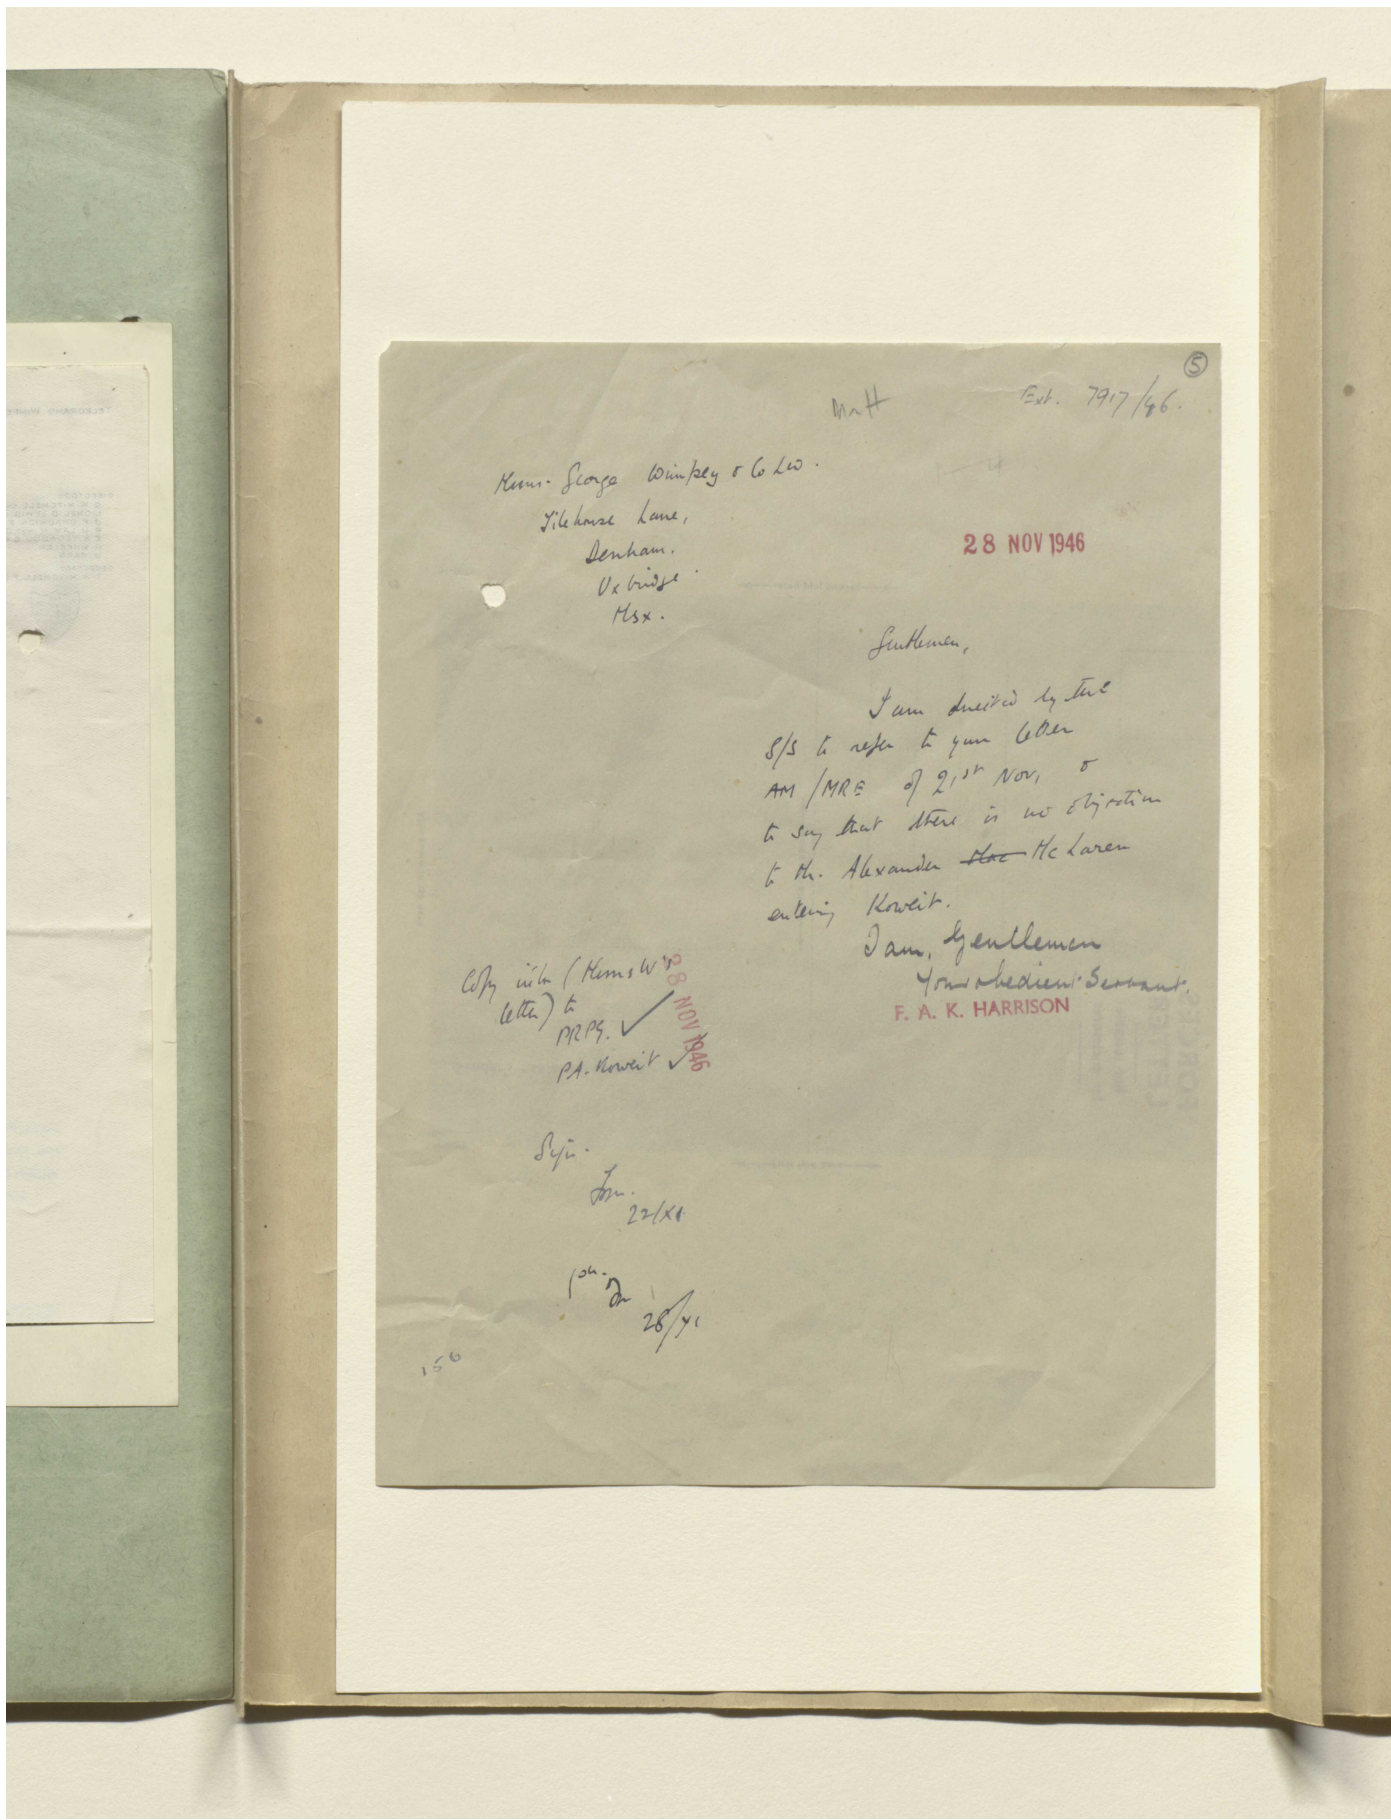 5
Ext. 7917/46.
Messrs. George Wimpey & Co Ltd.
Tilehouse Lane,
Denham.
Uxbridge.
Msx.
28 NOV 1946
Gentlemen,
I am directed by the
S/S to refer to your letter
AM/MRE of 21st Nov, &
to say that there is no objection
to Mr. Alexander Mac McLaren
entering Koweit.
I am, Gentlemen
Your obedient Servant.
F. A. K. HARRISON
Copy (Messrs W's
letter) to
PRPG.
PA. Koweit
28 NOV 1946
22/XI
28/XI
156